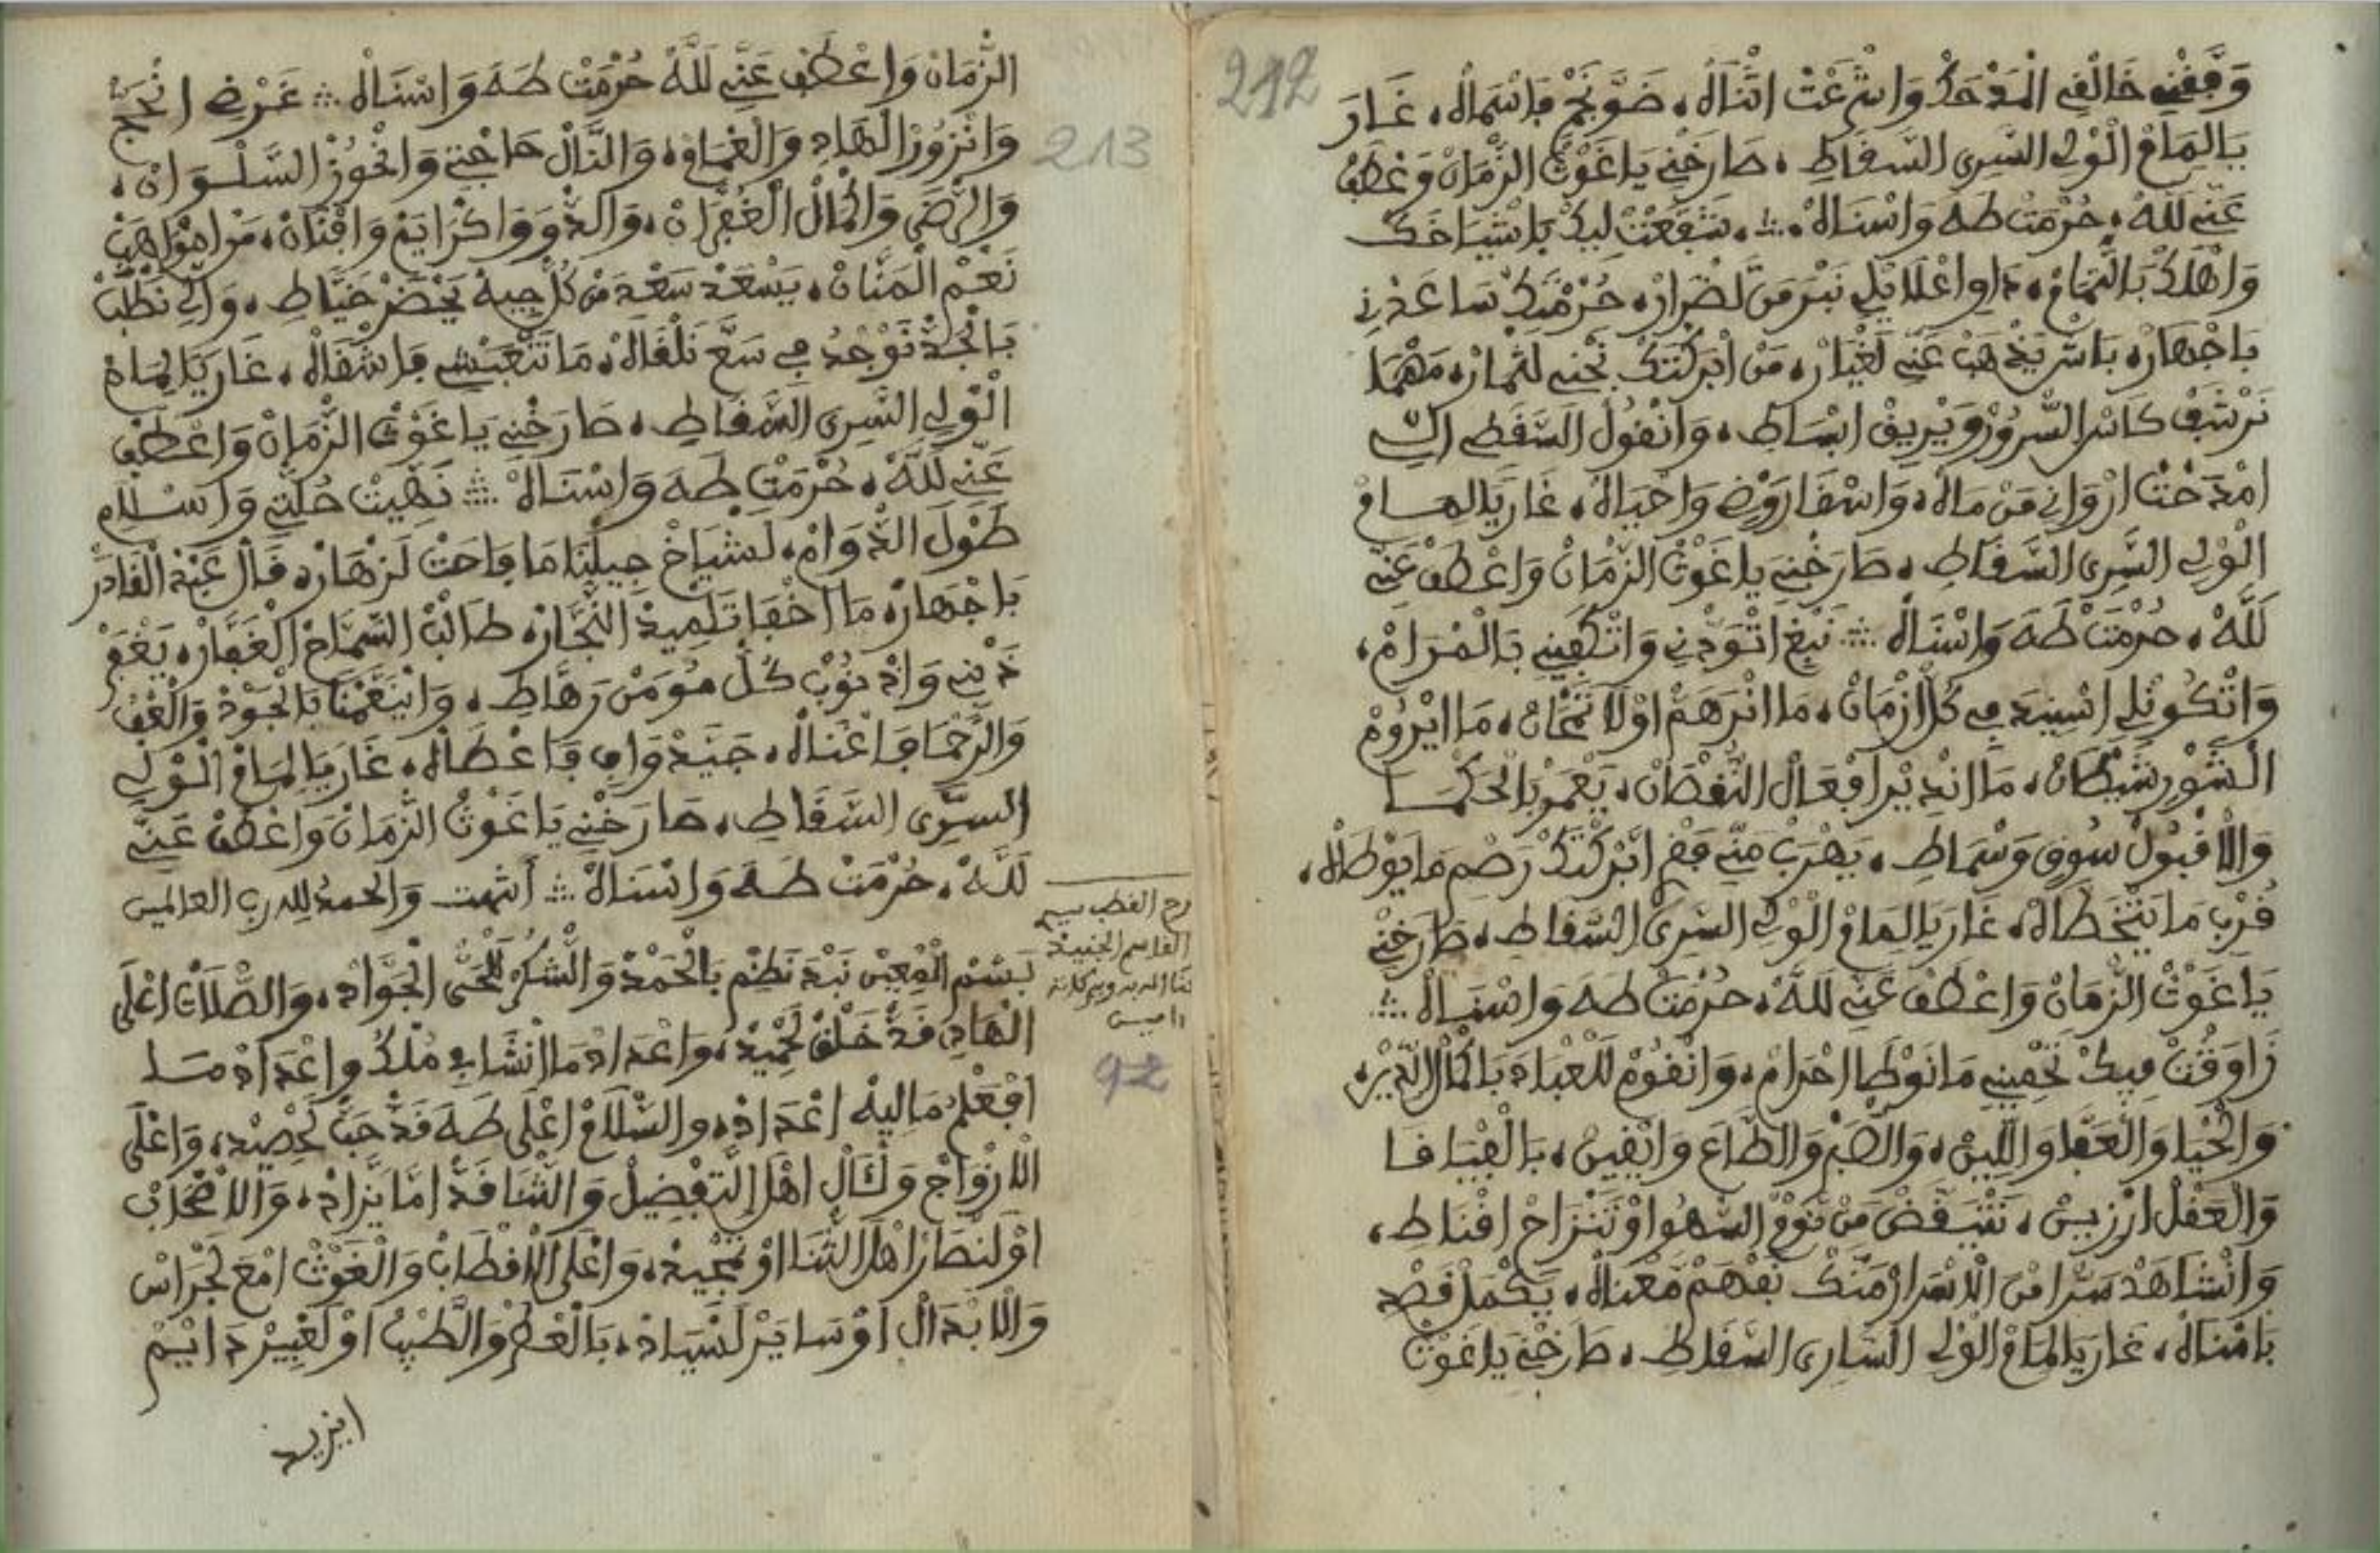 212
وَفِّقْنِي خَالْقِي الْمَدْحَكْ وَاشْرَعْتْ اثْنَاهْ، ضَوِّ نَجْمِ فَاسْمَاهْ، غَارَ
يَالِمَامْ الْوْلِي السَّرِى السَّقَاطِ، صَارَخْنِي يَا غَوْثْ الزّْمَانْ وَعْطَفْ
عَنِّي لَلَّهْ، حُرْمَتْ طَهَ وَاسْنَاهْ ∴ تشَفَّعْتْ لِيكْ بَاشْيَاخَكْ
وَاهْلَكْ بَالتّْمَامْ، دَاوِ اعْلَايْلِي نَبْرَ مَنْ لَضْرَارْ، حُرْمْتَكْ سَاعَدْنِي
بَاجْهَارْ، بَاشْ يَذْهَبْ عَنِّي لَغْيَارْ، مَنْ ابْرَكْتَكْ نَجْنِي لَثْمَارْ، مَهْمَا
نَرْشَفْ كَاسْ السّْرُورْ وَيْرِيقْ ابْسَاطِ، وَانْقُولْ السَّقَطِي الِّي
امْدَحْتْ ارْوَانِي مَنْ مَاهْ، وَاسْقَا رَوْضِي وَاحْيَاهْ، غَارَ يَالِمَامْ
الْوْلِي السَّرِى السَّقَاطِ، صَارَخْنِي يَا غَوْثْ الزّْمَانْ وَاعْطَفْ عَنِّي
لَلَّهْ، حُرْمَتْ طَهَ وَاسْنَاهْ ∴ نَبْغِ اتْوَدْنِي وَاتْكَفِينِي بَالْمْرَامْ،
وَاتْكُونْلِي اسْنِيدْ فِي كُلّْ ازْمَانْ، مَا انْرَهَمْ اوْلَا نَمْحَانْ، مَا ايْرُومْ
الشّْوْرِ شَيْطَانْ، مَا انْدِيرْ افْعَالْ النُّقْصَانْ، يَعْمَرْ بَالْحَكْمَا
وَالْاقْبُولْ سُوقِ وَسْمَاطِ، يَهْرَبْ مَنِّي فَقْرِ ابْرَكْتَكْ رَصْمِ مَا يَوْطَاهْ،
قُرْبِ مَا يَتْخَطَاهْ، غَارَ يَالِمَامْ الْوْلِي السَّرِى السَّقَاطِ، صَارَخْنِي
يَا غَوْثْ الزّْمَانْ وَاعْطَفْ عَنِّي لَلَّهْ، حُرْمَتْ طَهَ وَاسْنَاهْ ∴
زَاوَقْتْ فِيكْ تَحْمِينِي مَا نَوْطَا احْرَامْ، وَانْقُومْ لَلْعْبَادَ بَاكْمَالْ الدِّينْ،
وَالْحْيَا وَالْعَفَّا وَاللِّينْ، وَالصّْبَرْ وَالطَّاعَ وَاتْقِينْ، بَالْقْيَافَا
وَالْعَقْلْ ارْزِينْ، نَتْيَقَّضْ مَنْ نَوْمْ السّْهُو اوْ تَنْزَاحْ اقْنَاطِ،
وَانْشَاهَدْ سَرّْ امْنْ الْاسْرَارْ مَنَّكْ نَفْهَمْ مَعْنَاهْ، يَكْمَلْ قَصْدِ
بَامْنَاهْ، غَارَ يَالِمَامْ الْوْلِي السَّارِى السَّقَاطِ، صَارَخْنِي يَا غَوْثْ
213
الزّْمَانْ وَاعْطَفْ عَنِّي لَلَّهْ حُرْمَتْ طَهَ وَاسْنَاهْ ∴ غَرْضِ انْحَجّْ
وَانْزُورْ الْهَادِ وَالْغْمَامْ، وَانَّالْ حَاجْتِي وَانْحُوزْ السَّلْوَانْ،
وَالرّْضَى وَاكْمَالْ الْغُفْرَانْ، وَالدَّوَ وَاكْرَايَمْ وَافْنَانْ، مَنْ امْوَاهَبْ
نَعْمْ الْمَنَّانْ، يَسْعَدْ سَعْدِ مَنْ كُلّْ جِيهْ يَخْضَرْ خَيَّاطِ، وَالِّي نَطْلَبْ
بَالْجَدّْ نَوْجْدُ فِي سَعَّ نَلْقَاهْ، مَا نَتْعَبْشِي فَاشْقَاهْ، غَارَ يَالِمَامْ
الْوْلِي السَّرِى السَّقَاطِ، صَارَخْنِي يَا غَوْثْ الزّْمَانْ وَاعْطَفْ
عَنِّي لَلَّهْ، حُرْمَتْ طَهَ وَاسْنَاهْ ∴ نَهِّيتْ حُلّْتِي وَاسْلَامِ
طَوْلَ الدّْوَامْ، لَشْيَاخْ جِيلْنَا مَا فَاحَتْ لَزْهَارْ، قَالْ عَبْدْ الْقَادَرْ
بَاجْهَارْ، مَا اخْفَا تَلْمِيدْ النَّجَّارْ، طَالَبْ السّْمَاحْ الْغَفَّارْ، يَغْفَرْ
ذَنْبِي وَاذْنُوبْ كُلّْ مُومَنْ رَهَّاطِ، وَانْيَغْمْنَا بَالْجَوْدْ وَالْعْفُ
وَالرَّحْمَا فَاغْنَاهْ، جَيَّدْ وَافِي فَاعْطَاهْ، غَارَ يَالِمَامْ الْوْلِي
السَّرِى السَّقَاطِ، صَارَخْنِي يَا غَوْثْ الزّْمَانْ وَاعْطَفْ عَنِّي
لَلَّهْ، حُرْمَتْ طَهَ وَاسْنَاهْ ∴ انتهت وَالحمدُ لله رب العالمين
رح القطب سيد
القاسم الجنيد
92
بَسْمْ الْمُعِينْ نَبْدَ نَظْمِ بَالْحَمْدْ وَالشُّكْرْ لَلْحَيّْ الْجَوَّادْ، وَالصّْلَاتْ اعْلَى
الْهَادِ قَدّْ خَلْقْ لَحْمِيدْ، وَاعْدَادْ مَا انْشَا فِي مُلْكُ وَاعْدَادْ مَا
افْعَلْمُ مَالِيهْ اعْدَادْ، وَالسّْلَامْ اعْلَى طَهَ قَدّْ حَبّْ لَحْصِيدْ، وَاعْلَى
الْازْوَاجْ وَالْآلْ اهْلْ التَّفْضِيلْ وَالثّْنَا قَدّْ امَّا يَزْدَادْ، وَالْاصْحَابْ
اوْلَنْصَارْ اهْلْ الثّْنَا اوْ تَمْجِيدْ، وَاعْلَى الْاقْطَابْ وَالْغَوْثْ امْعَ لَجْرَاسْ
وَالْابْدَالْ اوْ سَايَرْ لَسْيَادْ، بَالْعْطَرْ وَالطّْيِبْ اوْ لَعْبِيرْ دَايَمْ
ايزيد